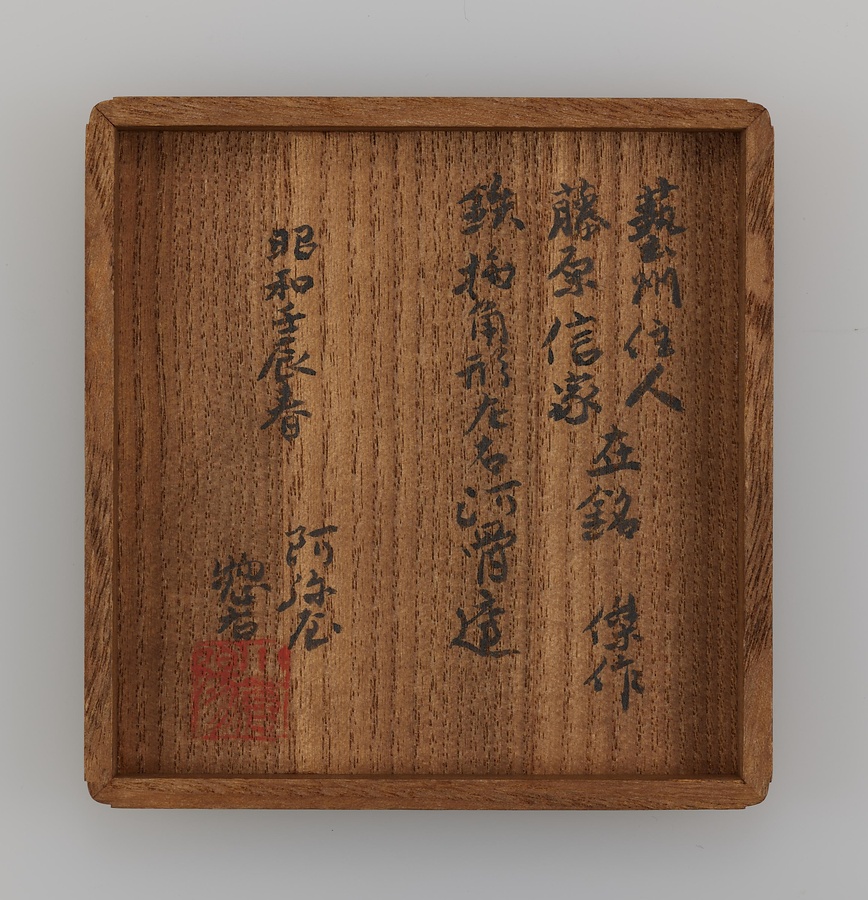 藝州住人
藤原信家
在銘 傑作
銕撫角形左右河骨
昭和壬辰春
阿弥屋
惣右